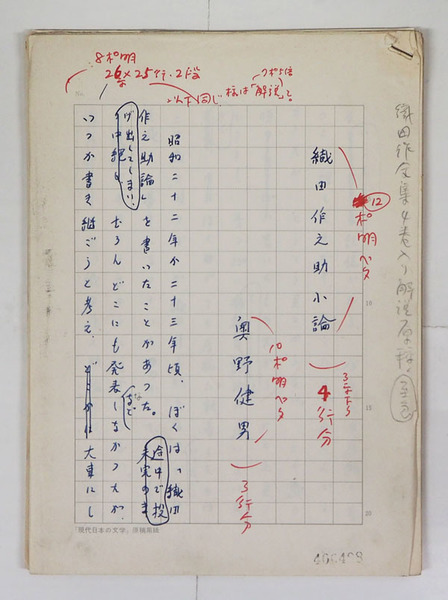 8ポ明
26字×25行.2段
以下同じ
柱は「解説」と。
12
ポ明ベタ
織田作之助小論
4行分
10ポ明ベタ
奥野健男
3行分
昭和二十二年か二十三年頃、ぼくは「織田
作之助論」を書いたことがあつた。途中で投
げ出してしまい、未完のま
むろんどこにも発表しなかつたが、
いつか書き継ごうと考え、大事にし
10
15
20
「現代日本の文学」原稿用紙